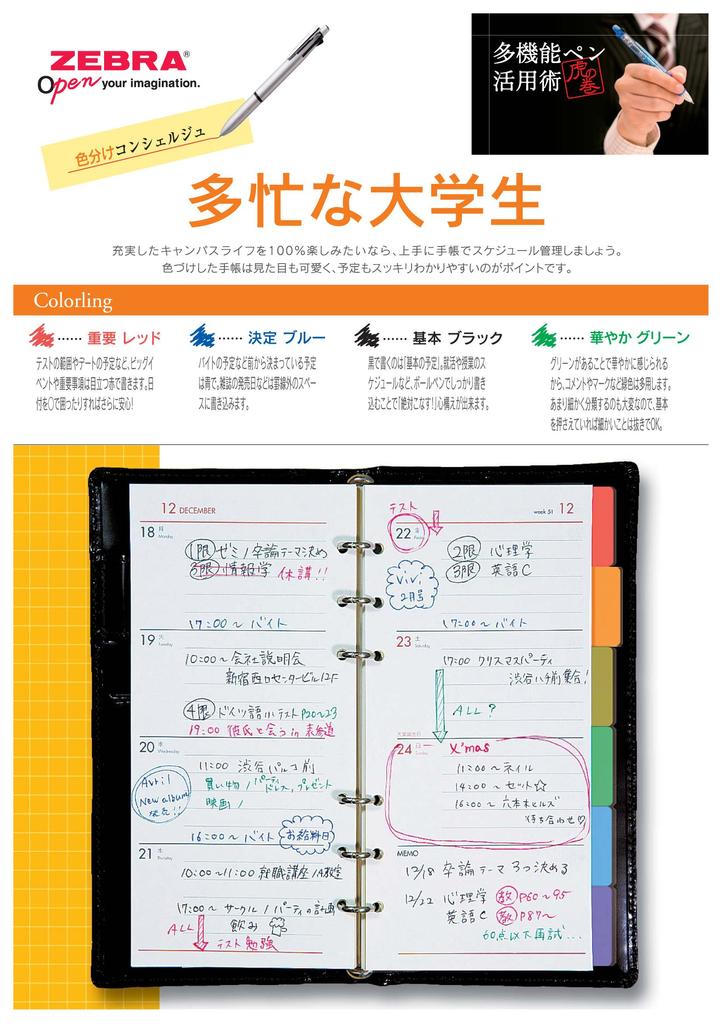 ZEBRA®
Open your imagination.
色分けコンシェルジュ
多機能ペン
活用術
虎の巻
多忙な大学生
充実したキャンパスライフを100%楽しみたいなら、上手に手帳でスケジュール管理しましょう。
色づけした手帳は見た目も可愛く、予定もスッキリわかりやすいのがポイントです。
Colorling
…… 重要 レッド
テストの範囲やデートの予定など、ビッグイ
ベントや重要事項は目立つ赤で書きます。日
付を○で囲ったりすればさらに安心!
…… 決定 ブルー
バイトの予定など前から決まっている予定
は青で。雑誌の発売日などは罫線外のスペー
スに書き込みます。
…… 基本 ブラック
黒で書くのは「基本の予定」。就活や授業のス
ケジュールなど、ボールペンでしっかり書き
込むことで「絶対こなす!」心構えが出来ます。
…… 華やか グリーン
グリーンがあることで華やかに感じられる
から、コメントやマークなど緑色は多用します。
あまり細かく分類するのも大変なので、基本
を押さえていれば細かいことは抜きでOK。
12 DECEMBER
18 月
Monday
1限 ゼミ / 卒論テーマ決め
3限 情報学 休講!!
17:00～ バイト
19 火
Tuesday
10:00～ 会社説明会
新宿西口センタービル12F
4限 ドイツ語小テスト P20～23
19:00 彼氏と会う in 表参道
20 水
Wednesday
11:00 渋谷パルコ前
買い物 / パーティドレス、プレゼント
映画 /
Avril
New album
発売!!
16:00～ バイト
お給料日
21 木
Thursday
10:00～11:00 就職講座 / A教室
17:00～ サークル / パーティの計画
飲み
ALL
テスト勉強
week 51 12
テスト
22 金
Friday
2限 心理学
3限 英語C
ViVi
2月号
17:00～ バイト
23 土
Saturday
17:00 クリスマスパーティ
渋谷ハチ前集合!
ALL?
天皇誕生日
24 日
Sunday
X'mas
11:00～ ネイル
14:00～ セット☆
16:00～ 六本木ヒルズ
待ち合わせ♡
MEMO
12/18 卒論テーマ 3つ決める
12/22 心理学 教 P60～95
英語C 教 P87～
60点以下再試…